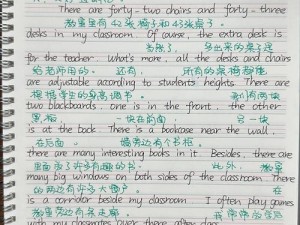 There are forty-two chairs and forty-three
教室里有42张椅子和43张桌子。
desks in my classroom. Of course, the extra desk is
当然了，多出来的桌子是
for the teacher. what's more, all the desks and chairs
给老师用的。还有，所有的桌椅都能
are adjustable according to students' heights. There are
根据学生的身高调节。
two blackboards, one is in the front, the other
黑板 一块在前面 另一块
is at the back. There is a bookcase near the wall,
在后面 墙旁边有个书柜,
there are many interesting books in it. Besides, there are
里面有了许多有趣的书。 此外，教室
many big windows on both sides of the classroom. There
的两边有许多大窗户
is a corridor beside my classroom. I often play games
教室旁边有条走廊。
with my classmates over there after class.